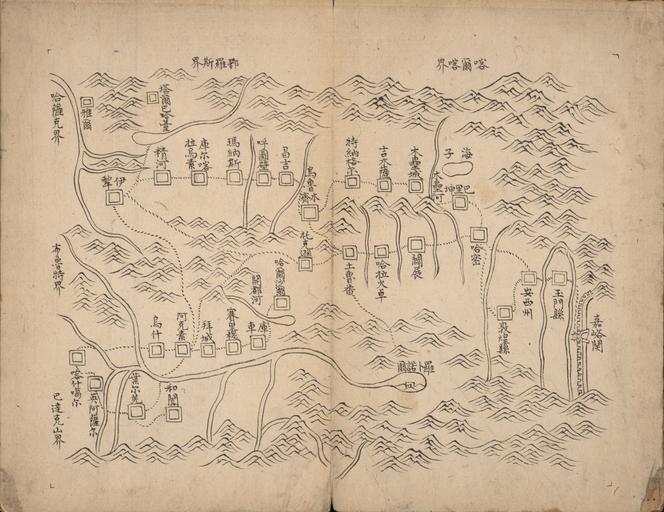 喀爾喀界
鄂羅斯界
哈薩克界
雅爾
塔爾巴哈臺
海子
木壘河
巴里坤
木壘城
吉木薩
特納格尔
烏魯木齊
昌吉
呼圖壁
瑪納斯
库尔喀
拉烏素
精河
伊犂
嘉峪関
玉門縣
安西州
敦煌縣
哈密
闢展
哈拉火卓
土魯番
托克遜
哈喇沙爾
開都河
布魯特界
庫車
賽里木
拜城
阿克素
烏什
羅卜諾爾
喀什噶尔
英阿薩尔
葉尔羌
和闐
巴達克山界